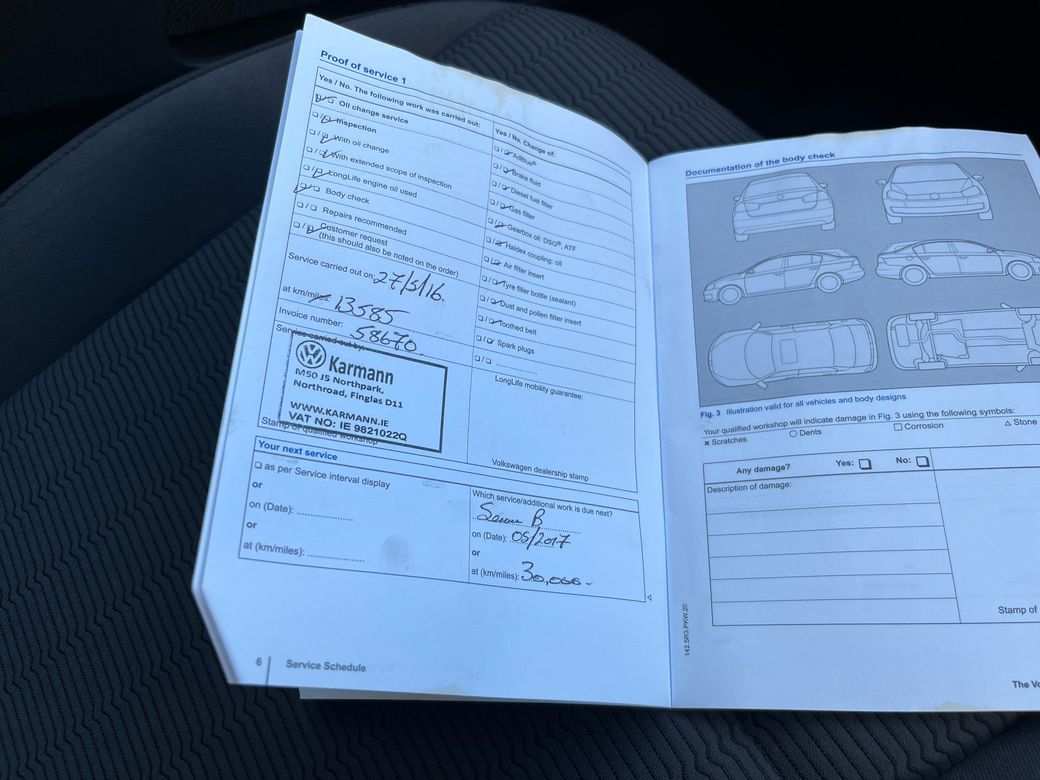 Proof of service 1
Yes / No. The following work was carried out:
❑ Oil change service
❑ / ❑ Inspection
❑ / ❑ With oil change
❑ / ❑ With extended scope of inspection
❑ / ❑ LongLife engine oil used
❑ Body check
❑ / ❑ Repairs recommended
❑ / ❑ Customer request
(this should also be noted on the order)
Service carried out on: 27/5/16.
at km/miles: 13585
Invoice number: 58670
Service carried out by:
Karmann
M50 J5 Northpark,
Northroad, Finglas D11
WWW.KARMANN.IE
VAT NO: IE 9821022Q
Stamp of qualified workshop
Yes / No. Change of:
❑ / ❑ AdBlue®
❑ / ❑ Brake fluid
❑ / ❑ Diesel fuel filter
❑ / ❑ Gas filter
❑ / ❑ Gearbox oil: DSG®, ATF
❑ / ❑ Haldex coupling: oil
❑ / ❑ Air filter insert
❑ / ❑ Tyre filler bottle (sealant)
❑ / ❑ Dust and pollen filter insert
❑ / ❑ Toothed belt
❑ / ❑ Spark plugs
❑ / ❑ ..................
LongLife mobility guarantee:
Volkswagen dealership stamp
Your next service
❑ as per Service interval display
or
on (Date): ..................
or
at (km/miles): ..................
Which service/additional work is due next?
B
on (Date): 05/2017
or
at (km/miles): 30,000 -
6 Service Schedule
Documentation of the body check
Fig. 3 Illustration valid for all vehicles and body designs
Your qualified workshop will indicate damage in Fig. 3 using the following symbols:
× Scratches ○ Dents □ Corrosion △ Stone
Any damage? Yes: ❑ No: ❑
Description of damage:
Stamp of
142.5R3.PKW.20
The Vo